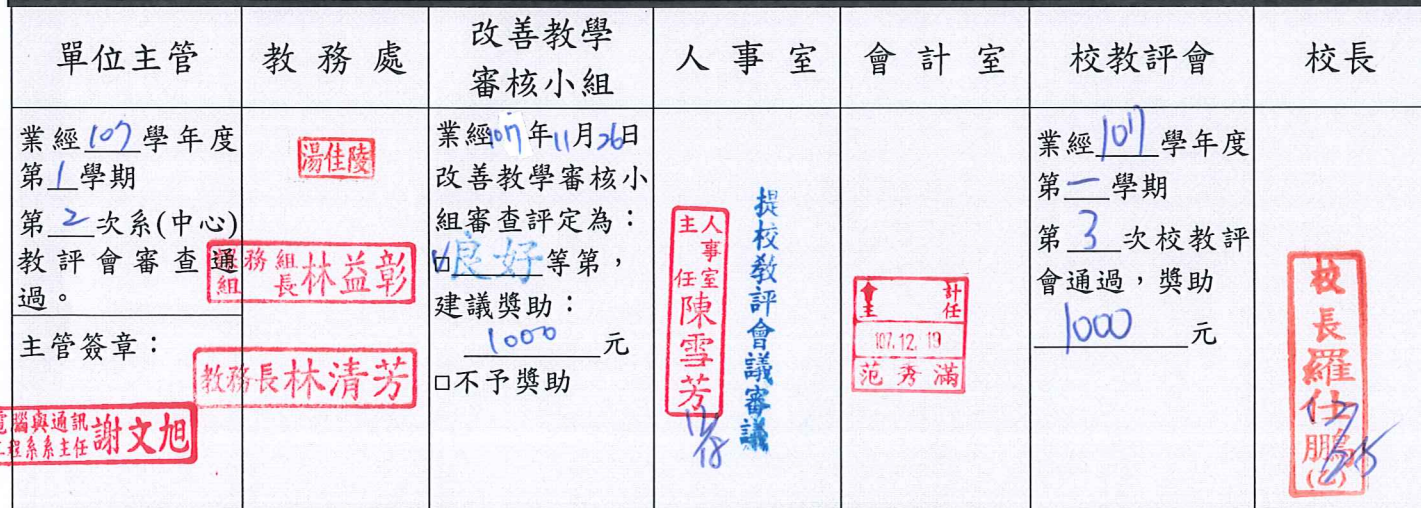 單位主管
教務處
改善教學
審核小組
人事室
會計室
校教評會
校長
業經107學年度
第1學期
第2次系(中心)
教評會審查通
過。
主管簽章：
電腦與通訊
工程系系主任
謝文旭
湯佳陵
教務長林清芳
林益彰
業經107年11月26日
改善教學審核小
組審查評定為：
良好等第，
建議獎助：
1000元
□不予獎助
人事室
主任
陳雪芳
提校教評會議審議
107.12.19
范秀滿
業經107學年度
第一學期
第3次校教評
會通過，獎助
1000元
校長羅仕鵬
(乙)